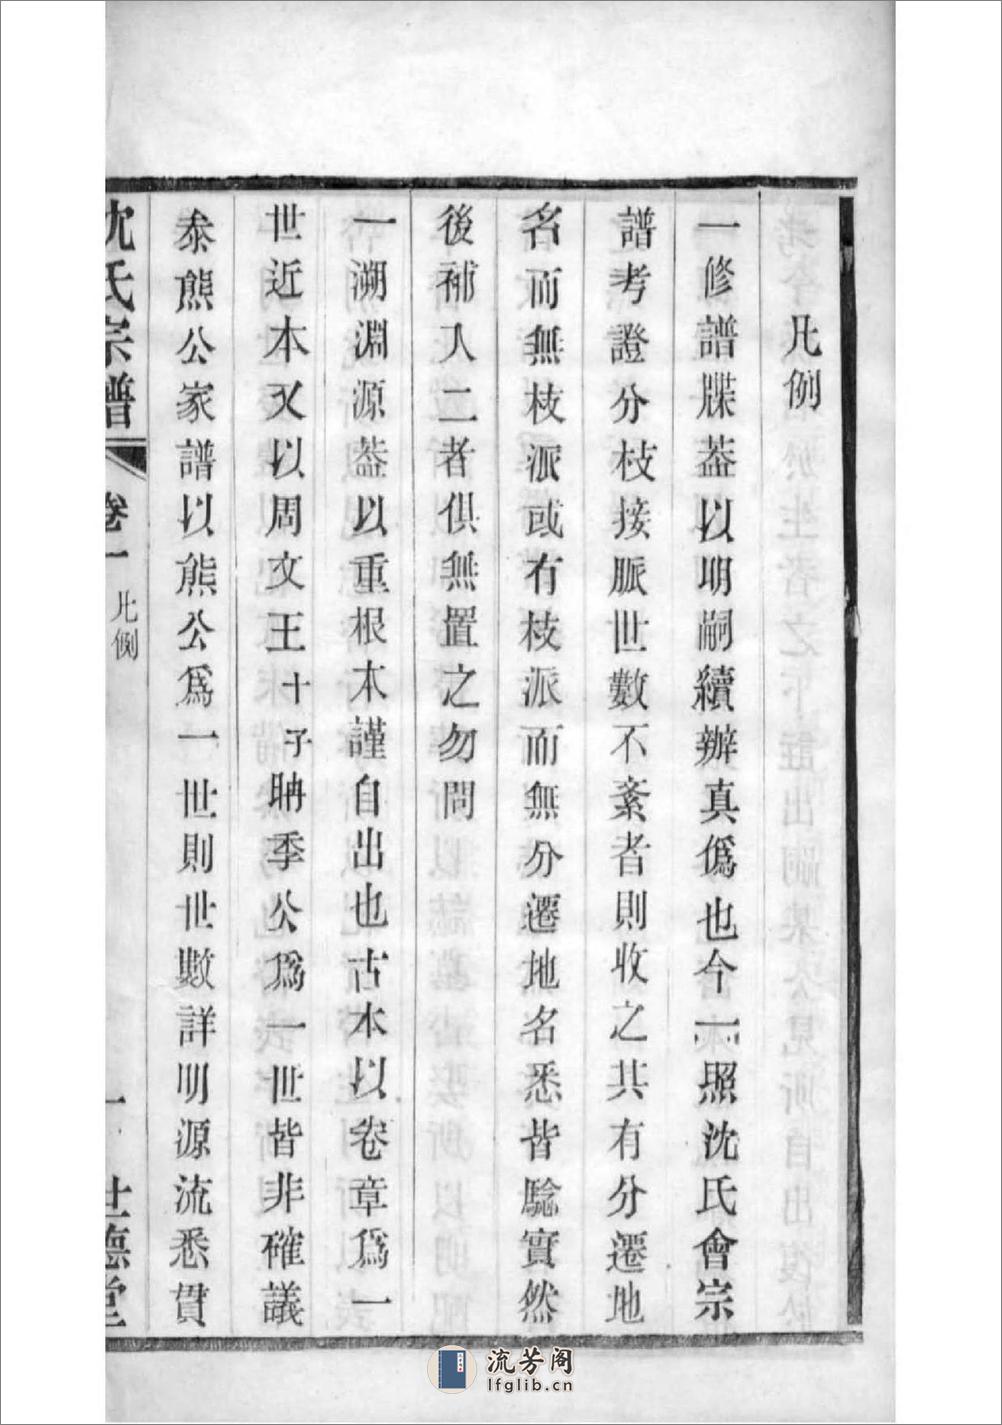 凡例
一修譜牒葢以明嗣續辦真僞也今一照沈氏會宗
譜考證分枝接脈世數不紊者則收之其有分遷地
名而無枝派或有枝派而無分遷地名悉皆騐實然
後補入二者俱無置之勿問
一溯淵源葢以重根本謹自出也古本以卷章爲一
世近本又以周文王十子耼季公爲一世皆非確議
泰熊公家譜以熊公爲一世則世數詳明源流悉貫
沈氏宗譜 卷一 凡例 一 世德堂
流芳阁
lfglib.cn